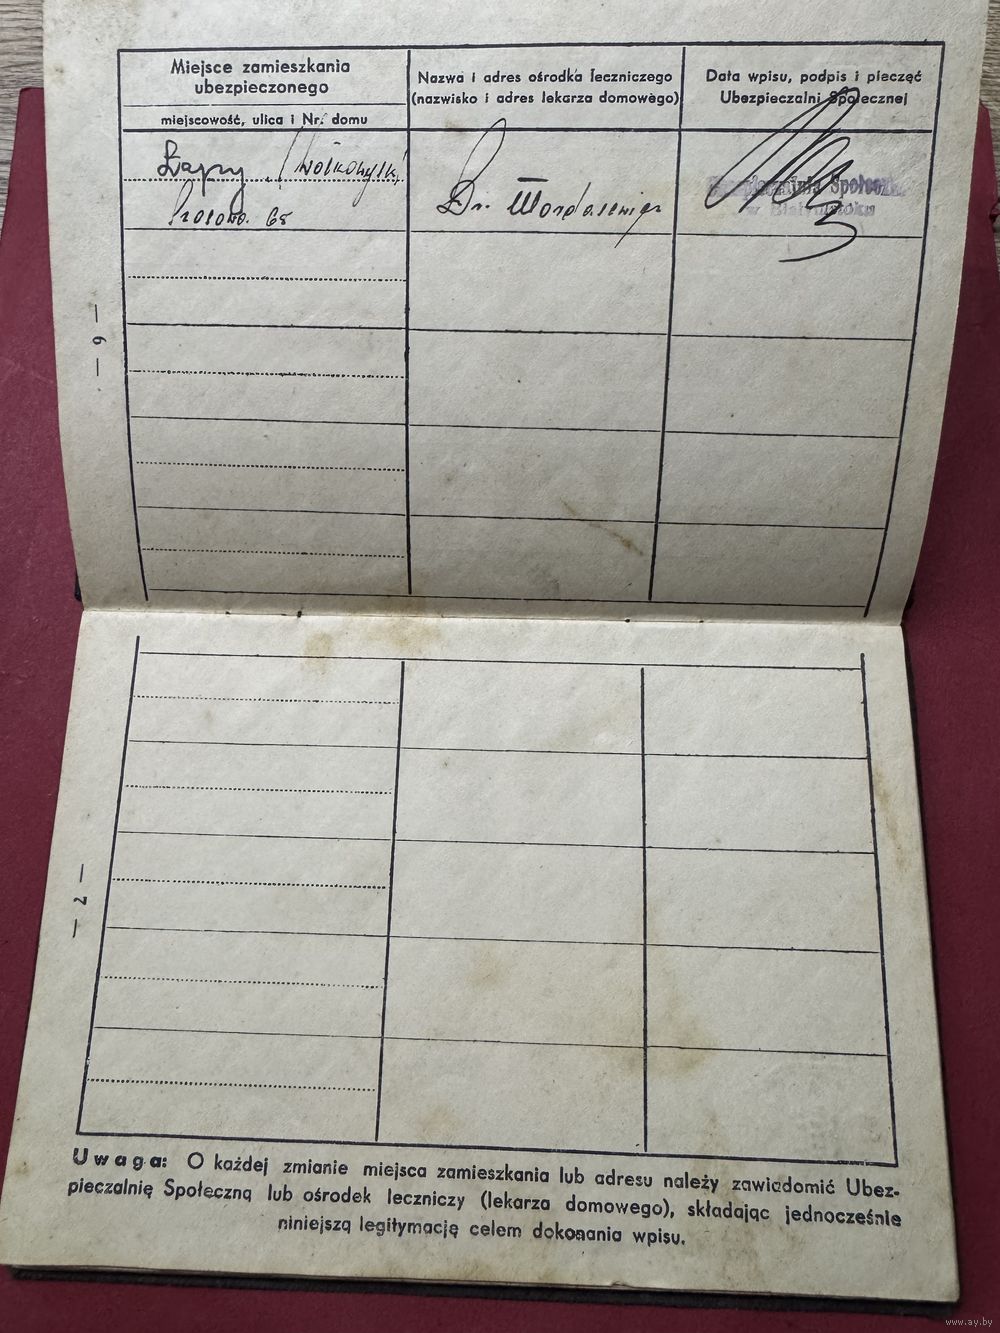 Miejsce zamieszkania
ubezpieczonego
miejscowość, ulica i Nr. domu
Nazwa i adres ośrodka leczniczego
(nazwisko i adres lekarza domowego)
Data wpisu, podpis i pieczęć
Ubezpieczalni Społecznej
Łapy
65
Dr.
Ubezpieczalnia Społeczna
w Białymstoku
— 6 —
— 7 —
Uwaga: O każdej zmianie miejsca zamieszkania lub adresu należy zawiadomić Ubez-
pieczalnię Społeczną lub ośrodek leczniczy (lekarza domowego), składając jednocześnie
niniejszą legitymację celem dokonania wpisu.
www.ay.by